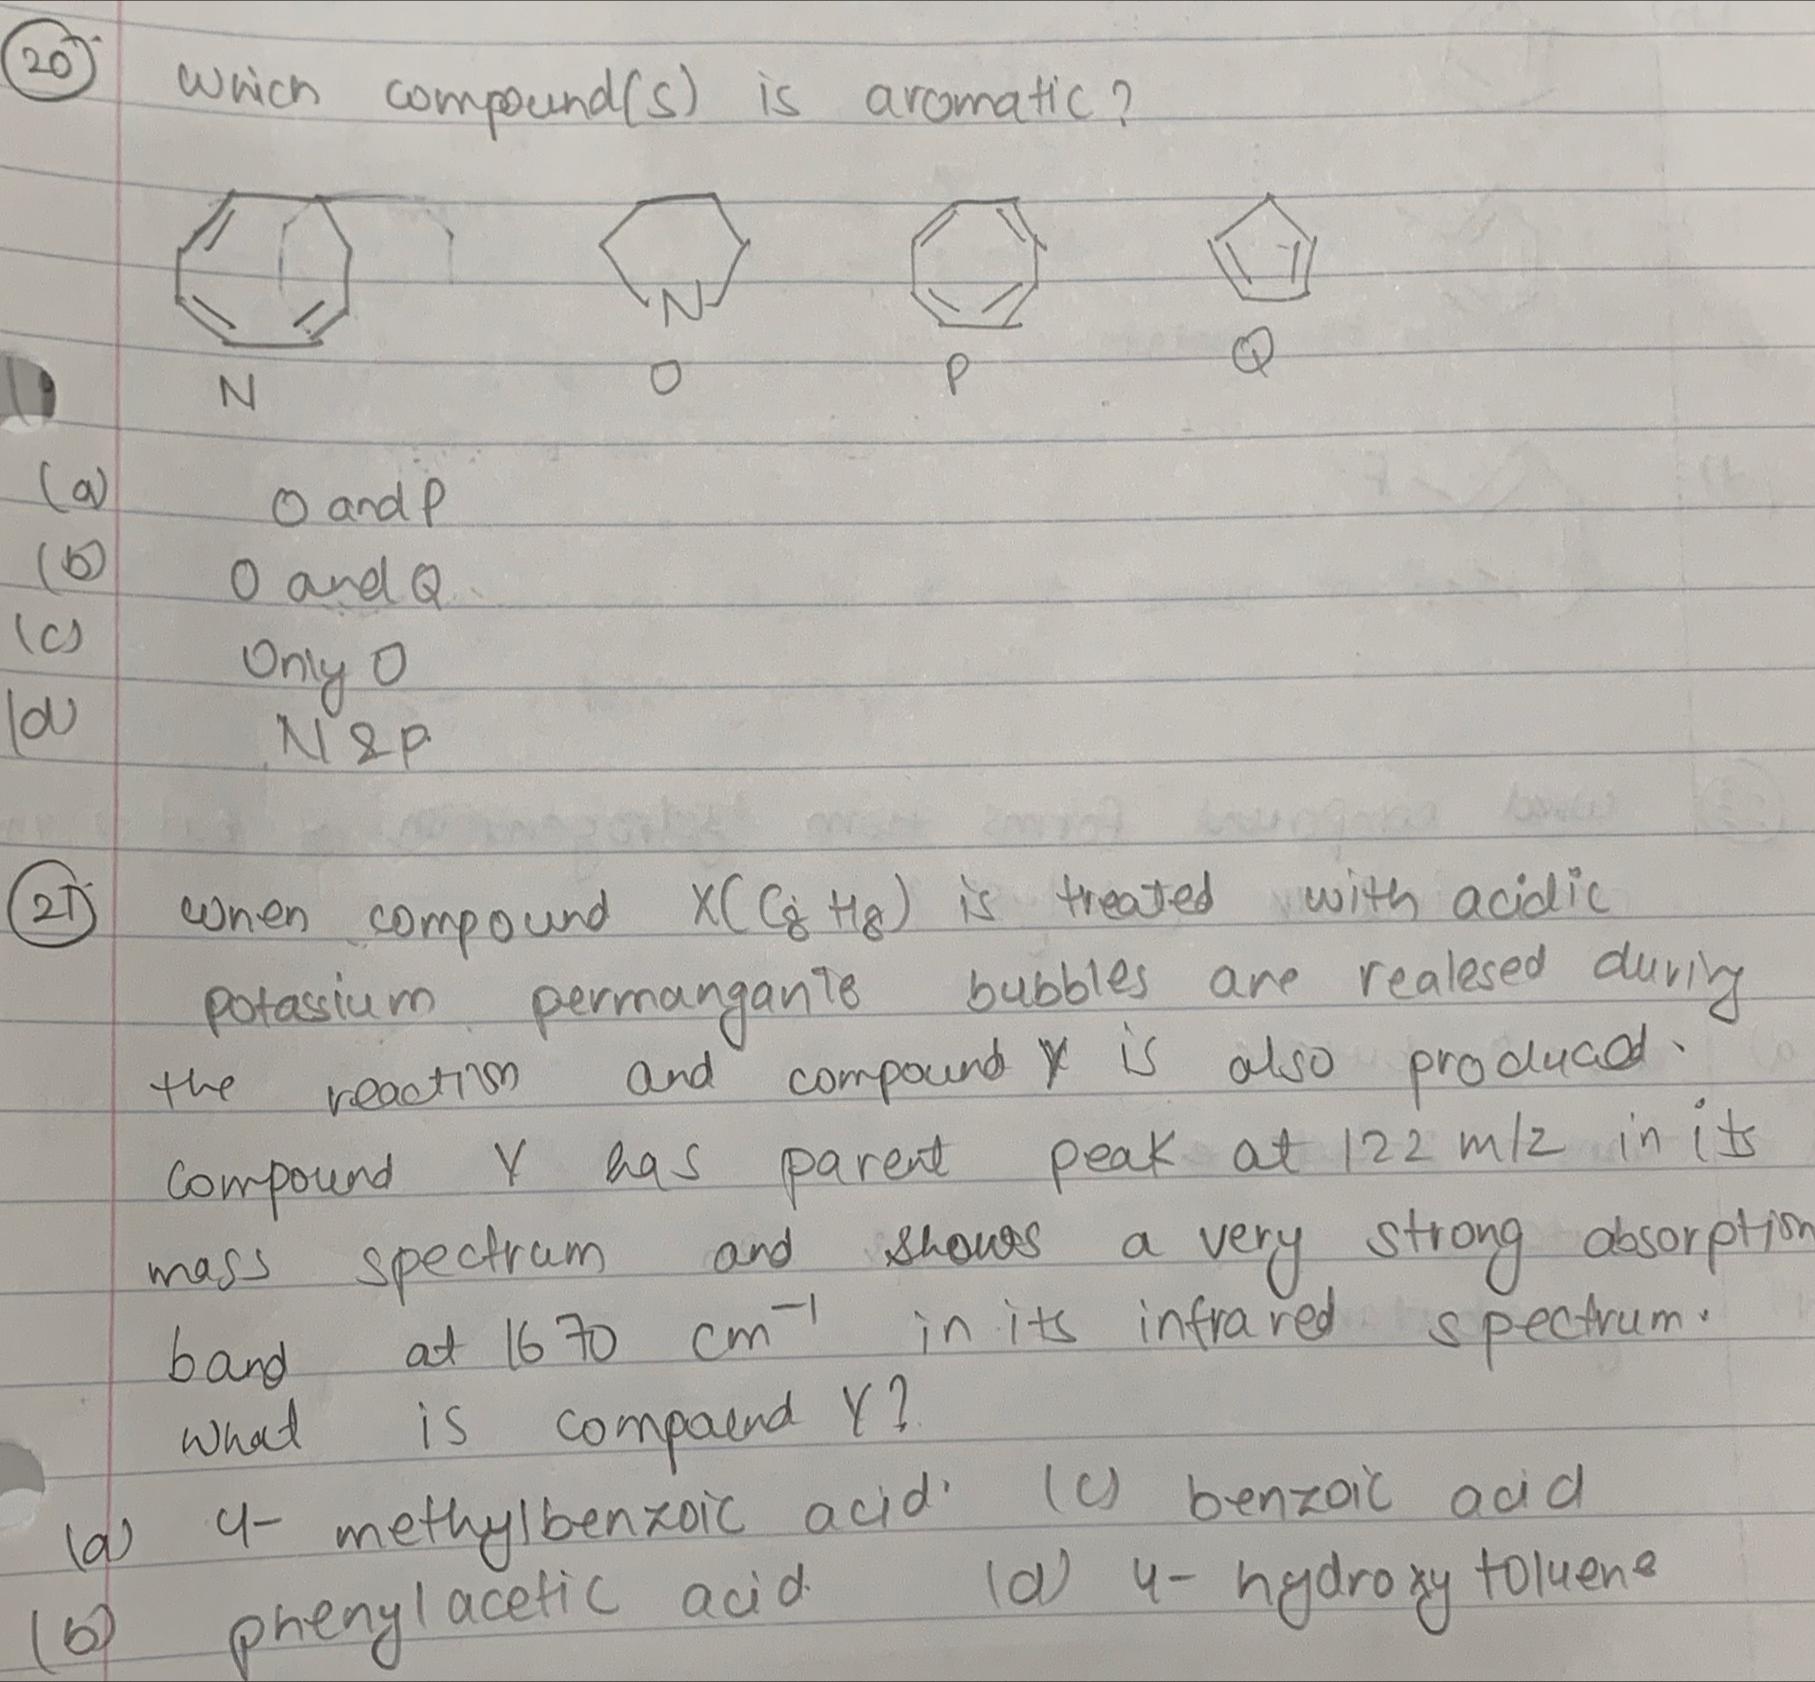 20
Which compound(s) is aromatic?
N
N O P Q
(a) O and P
(b) O and Q
(c) Only O
(d) N & P
21 When compound X(C8H8) is treated with acidic
potassium permanganate bubbles are realesed during
the reaction and compound Y is also produced.
Compound Y has parent peak at 122 m/z in its
mass spectrum and shows a very strong absorption
band at 1670 cm⁻¹ in its infrared spectrum.
What is compound Y?
(a) 4- methylbenzoic acid. (c) benzoic acid
(b) phenylacetic acid (d) 4- hydroxytoluene